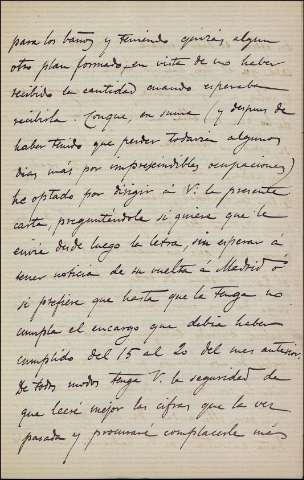 para los baños y teniendo quizás algun
otro plan formado, en vista de no haber
recibido la cantidad cuando esperaba
recibirla. Conque, en suma (y despues de
haber tenido que perder todavia algunos
dias más por imprescindibles ocupaciones)
he optado por dirigir á V. la presente
carta, preguntándole si quiere que le
envie desde luego la letra, sin esperar á
tener noticia de su vuelta á Madrid ó
si prefiere que hasta que la tenga no
cumpla el encargo que debia haber
cumplido del 15 al 20 del mes anterior.
De todos modos tenga V. la seguridad de
que leere mejor las cifras que la vez
pasada y procuraré complacerle más